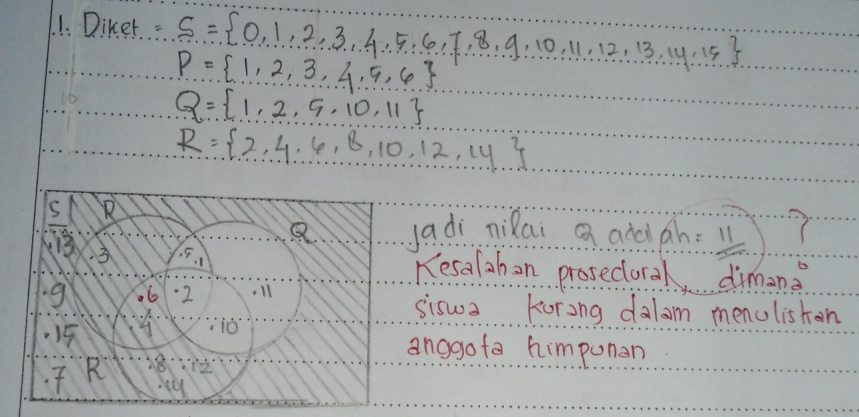 1. Diket = S = {0,1,2,3,4,5,6,7,8,9,10,11,12,13,14,15}
P = {1,2,3,4,5,6}
Q = {1,2,5,10,11}
R = {2,4,6,8,10,12,14}
S R Q
.13 .3 .5 .1
.9 .6 .2 .11
.15 .4 .10
.7 R .8 .12
.14
jadi nilai Q adalah = 11 ?
Kesalahan prosedural, dimana
siswa kurang dalam menuliskan
anggota himpunan